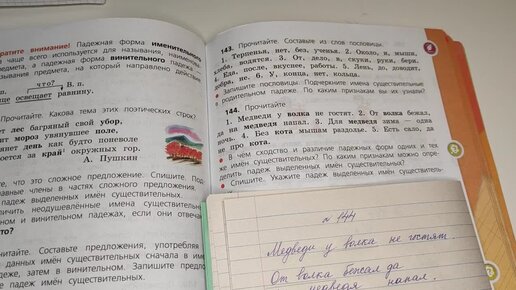 ратите внимание! Падежная форма именительного
чаще всего используется для называния, наимено-
мета, а падежная форма винительного падежа —
зывания предмета, на который направлено действие
что?
В. п.
освещает равнину.
Прочитайте. Какова тема этих поэтических строк?
ет лес багряный свой убор,
ит мороз увянувшее поле,
нет день как будто поневоле
оется за край окружных гор.
А. Пушкин
те, что это сложное предложение. Спишите. Под-
главные члены в частях сложного предложения.
те падеж выделенных имён существительных.
личию неодушевлённые имена существительные
ном и винительном падежах, если они отвечаю
то?
читайте. Составьте предложения, употребляя
данных имён существительных сначала в име
деже, затем в винительном. Запишите предло
падеж имён существительных.
143. Прочитайте. Составьте из слов пословицы.
1. Терпенья, нет, без, ученья. 2. Около, и, мыши,
хлеба, водятся. 3. От, дело, в, скуки, руки, бери.
4. Еда, после, вкуснее, работы. 5. Лень, до, доводит,
добра, не. 6. У, конца, нет, кольца.
Запишите пословицы. Подчеркните имена существительные
родительном падеже. По каким признакам вы их узнали?
144. Прочитайте.
1. Медведи у волка не гостят. 2. От волка бежал,
да на медведя напал. 3. Для медведя зима — одна
ночь. 4. Без кота мышам раздолье. 5. Есть сало, да
не про кота.
В чём сходство и различие падежных форм одних и тех
же имён существительных? По каким признакам можно опре-
делить падеж выделенных имён существительных?
Спишите. Укажите падеж выделенных имён существитель-
№ 144
Медведи у волка не гостят.
От волка бежал да
медведя напал.